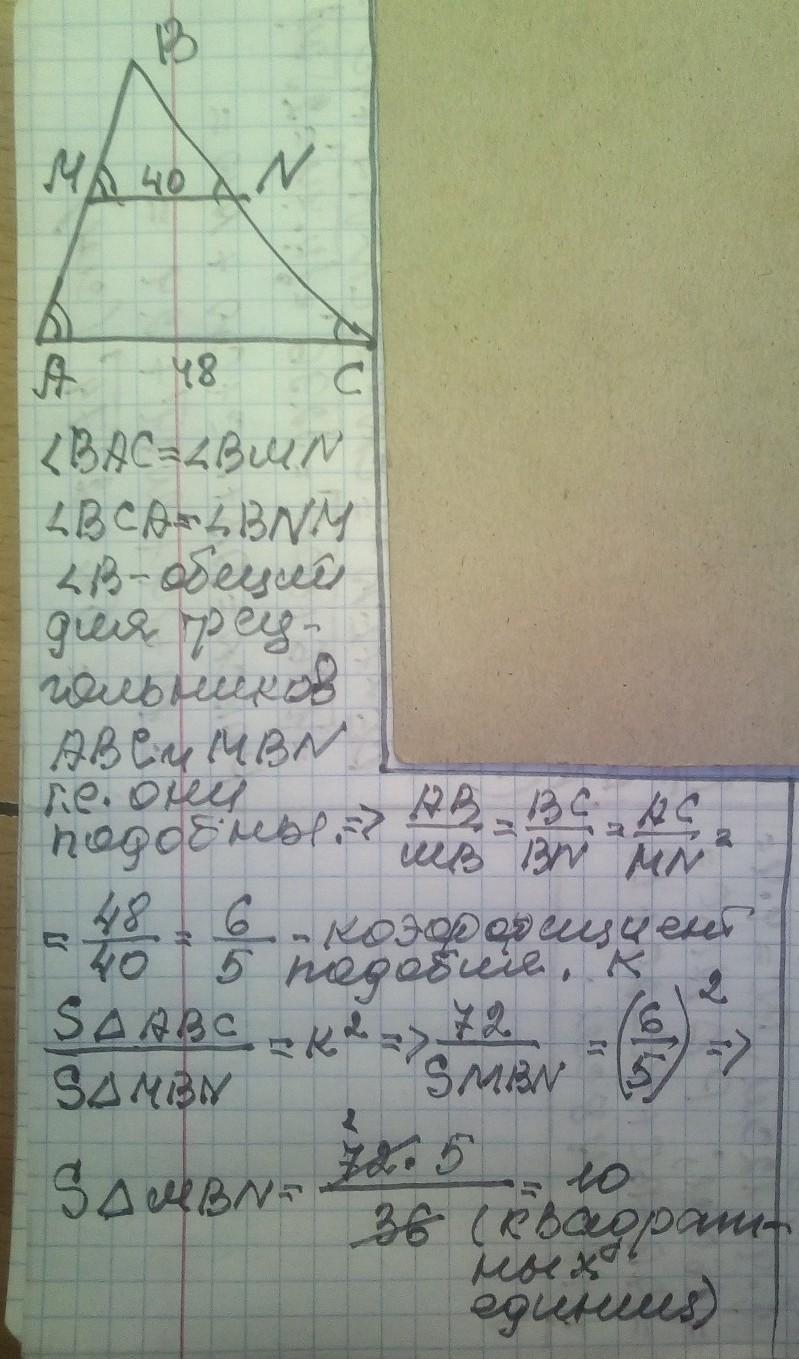 B
M 40 N
A 48 C
∠BAC=∠BMN
∠BCA=∠BNM
∠B-общий
для треу-
гольников
ABC и MBN
т.е. они
подобны. => AB/MB = BC/BN = AC/MN =
= 48/40 = 6/5 - коэффициент
подобия. K
S△ABC/S△MBN = K² => 72/SMBN = (6/5)² =>
S△MBN = 72·5/36 = 10
2
(квадрат-
ных
единиц)